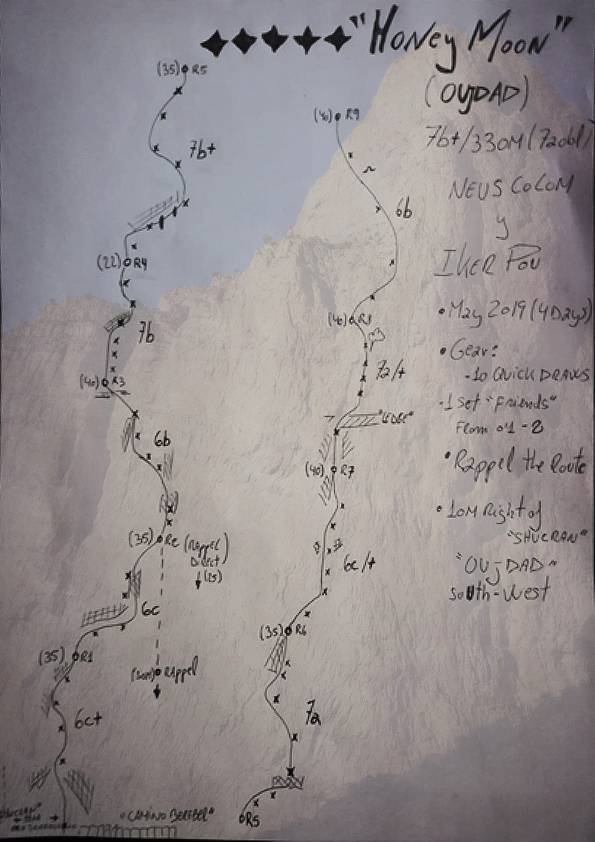 "HONEY MOON"
(OUJDAD)
7b+/330M (7a obl)
NEUS COLOM
y
IKER POU
• MAY 2019 (4 DAYS)
• GEAR:
-10 QUICK DRAWS
-1 SET "FRIENDS"
FROM 0'1 - 2
• RAPPEL THE ROUTE
• 10M RIGHT OF
"SHUCRAN"
"OUJDAD"
SOUTH-WEST
(35) R5
7b+
(22) R4
7b
(40) R3
6b
(35) R2 (RAPPEL
DIRECT
(25)
6c
(35) R1
RAPPEL
6c+
"CAMINO BEREBER"
(40) R9
6b
(40) R8
7a/+
"LEDGE"
(40) R7
6c/+
(35) R6
7a
R5